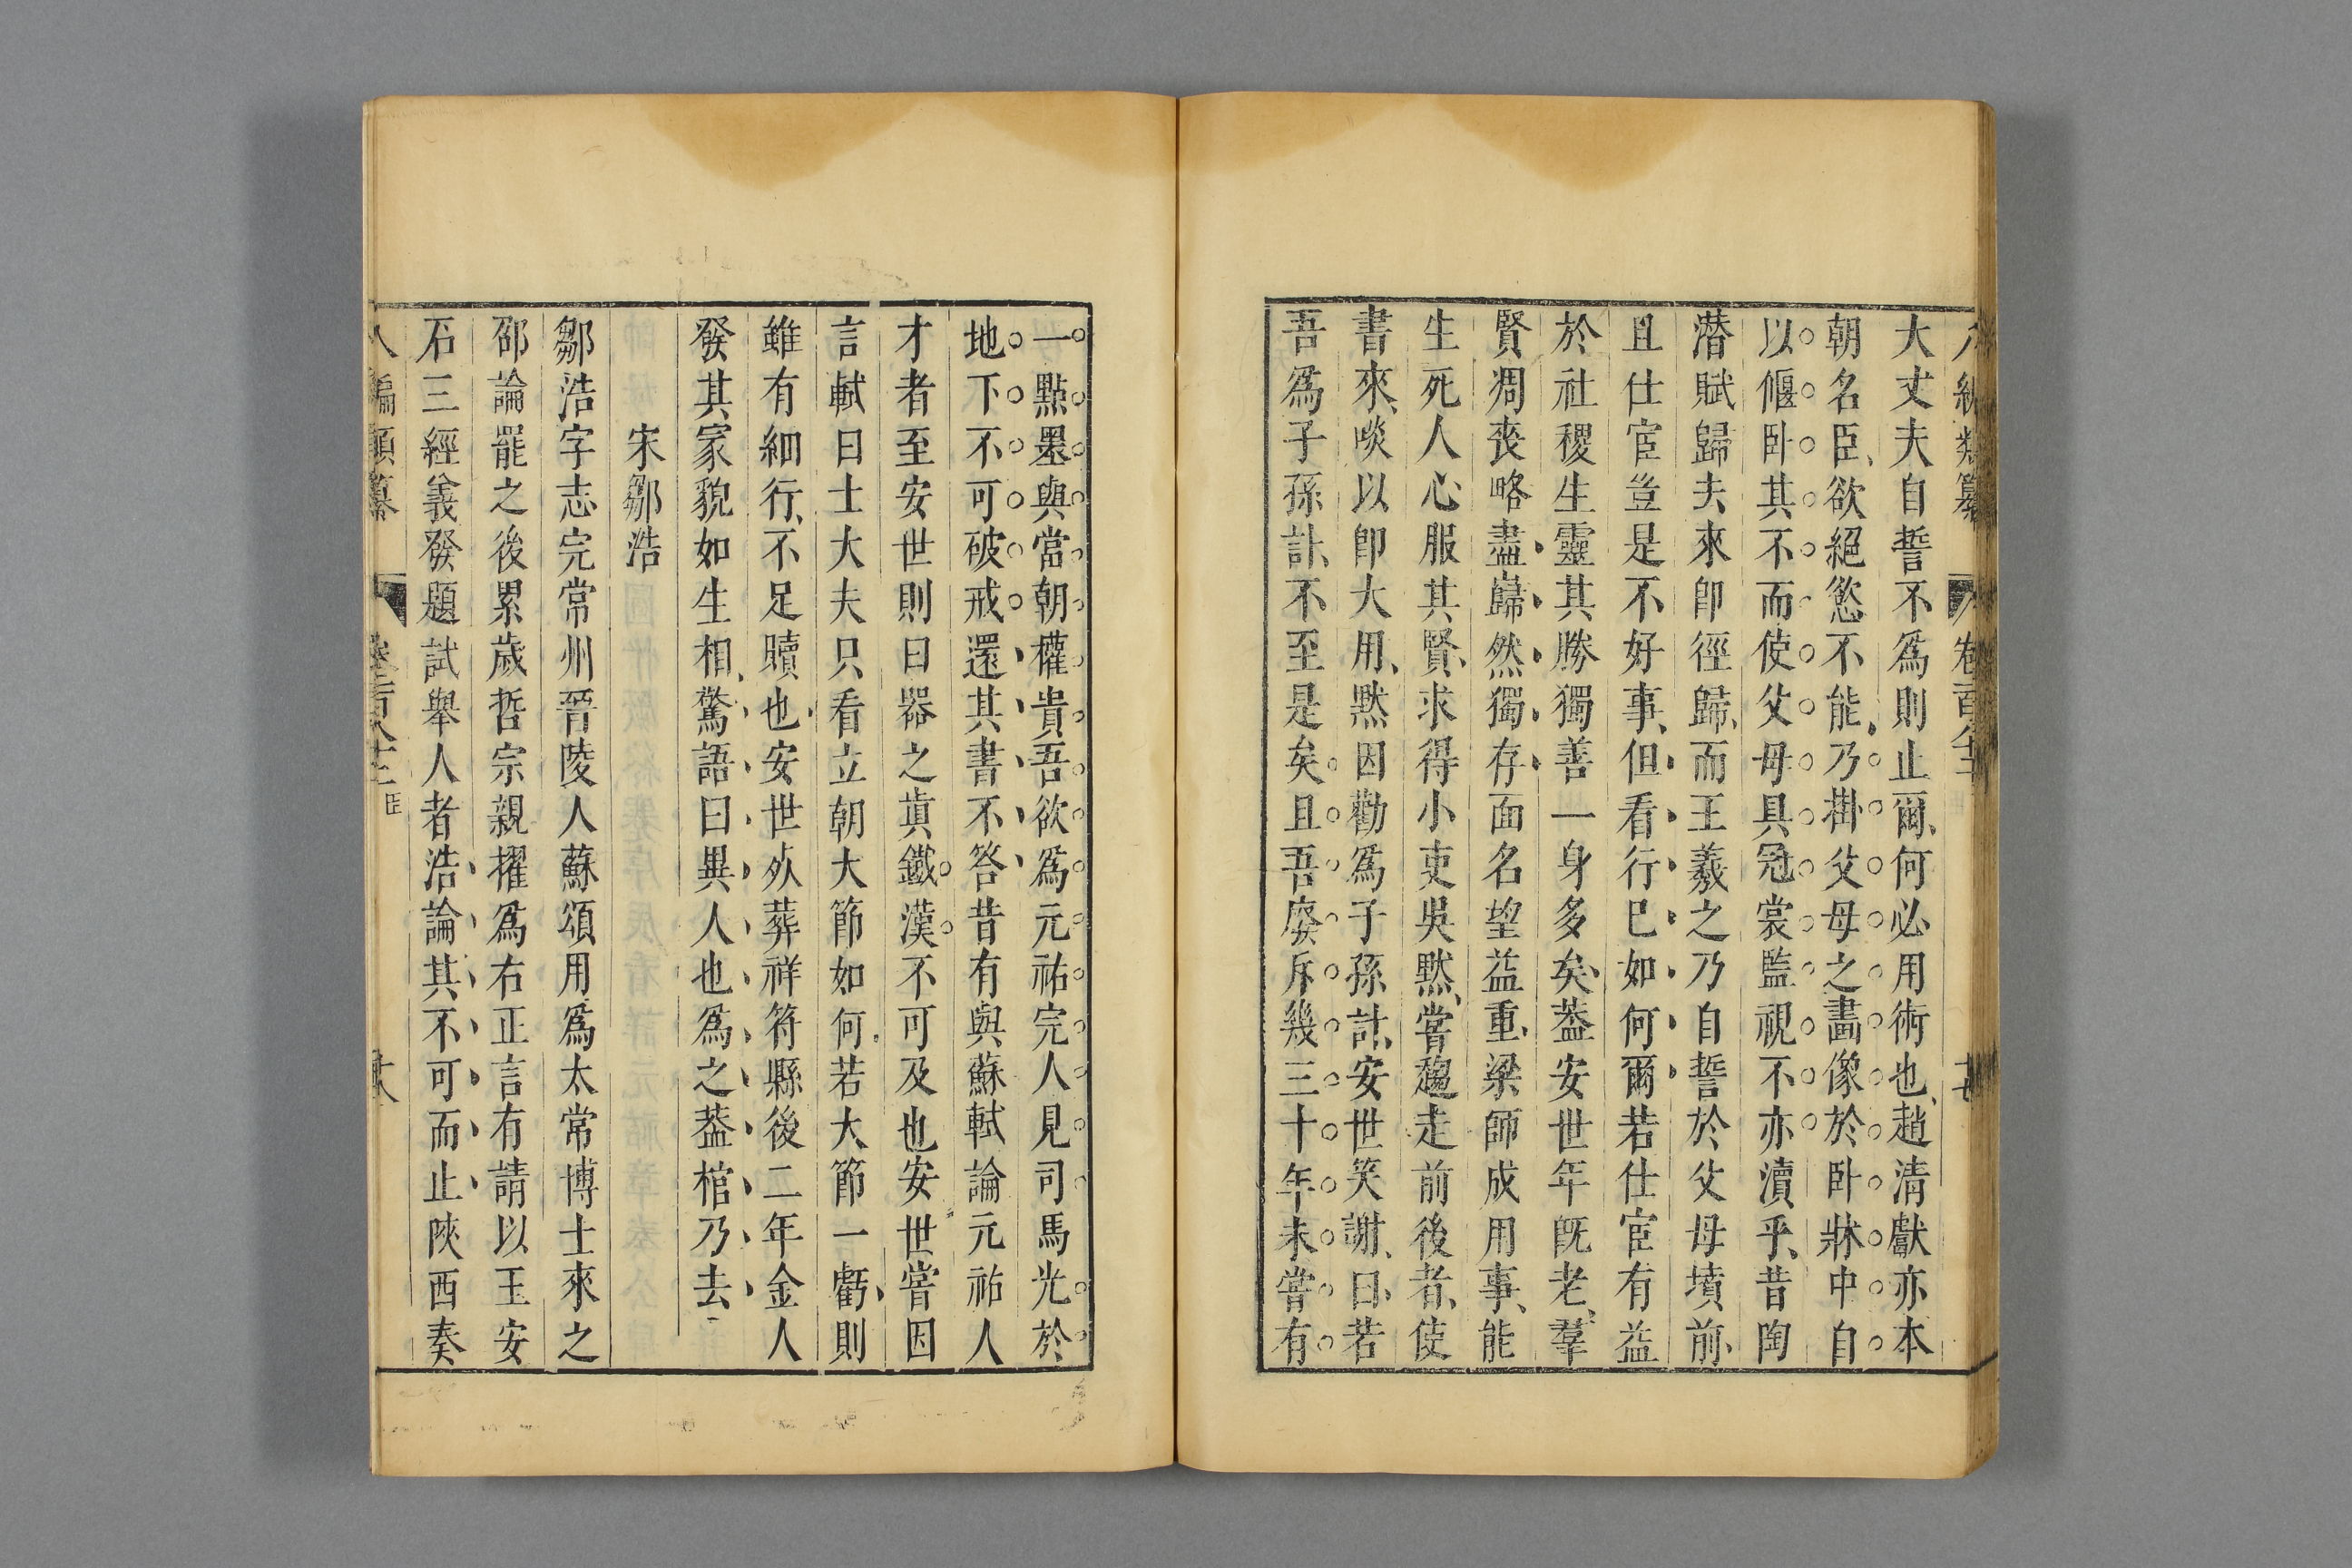 大丈夫自誓不爲則止爾何必用術也趙清獻亦本
朝名臣欲絕慾不能乃掛父母之畫像於卧牀中自
以偃卧其不而使父母具冠裳監視不亦瀆乎昔陶
潜賦歸去來卽徑歸而王羲之乃自誓於父母墳前
且仕宦豈是不好事但看行已如何爾若仕宦有益
於社稷生靈其勝獨善一身多矣葢安世年旣老羣
賢凋喪略盡巋然獨存面名望益重梁師成用事能
生死人心服其賢求得小吏吳默嘗趨走前後者使
書來啖以卽大用默因勸爲子孫計安世笑謝曰若
吾爲子孫計不至是矣且吾廢斥幾三十年未嘗有
一點墨與當朝權貴吾欲爲元祐完人見司馬光於
地下不可破戒還其書不答昔有與蘇軾論元祐人
才者至安世則曰器之眞鐵漢不可及也安世嘗因
言軾曰士大夫只看立朝大節如何若大節一虧則
雖有細行不足贖也安世死葬祥符縣後二年金人
發其冢貌如生相驚語曰異人也爲之葢棺乃去
宋鄒浩
鄒浩字志完常州晉陵人蘇頌用爲太常博士來之
邵論罷之後累歲哲宗親擢爲右正言有請以王安
石三經義發題試舉人者浩論其不可而止陝西奏